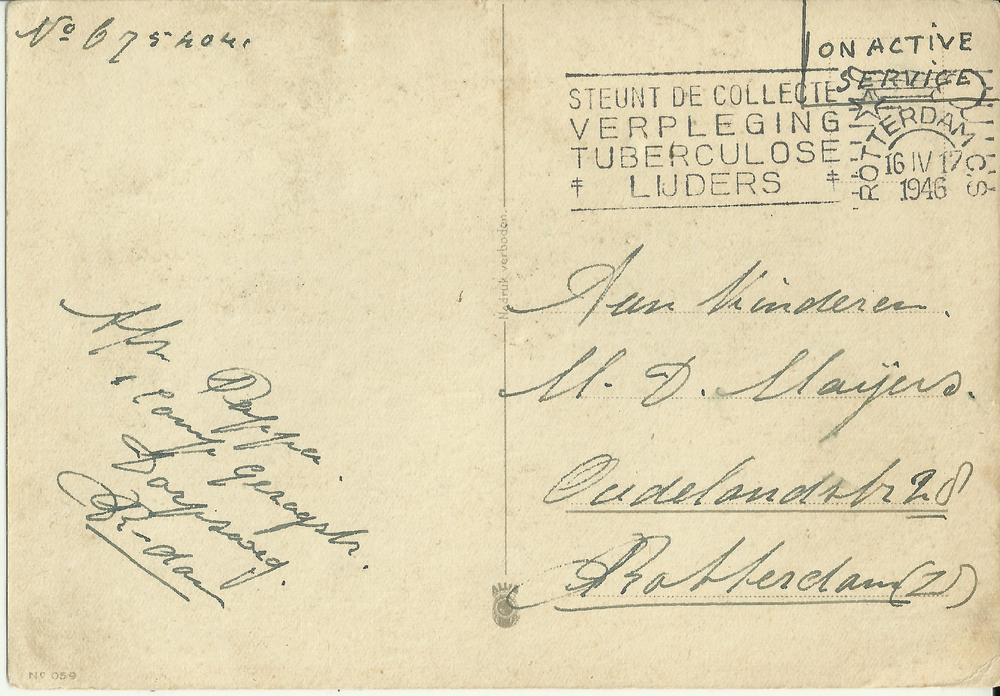 No 675
ON ACTIVE
SERVICE
STEUNT DE COLLECTE
VERPLEGING
TUBERCULOSE
‡ LIJDERS ‡
ROTTERDAM
16 IV 17
1946
Nadruk verboden
Aan Kinderen.
M. D. Maijers.
Oudelandstr 28
Rotterdam (Z)
Afz
Pappa.
1 Comp. Geragstr.
Dorpsweg.
R-dam
No 059